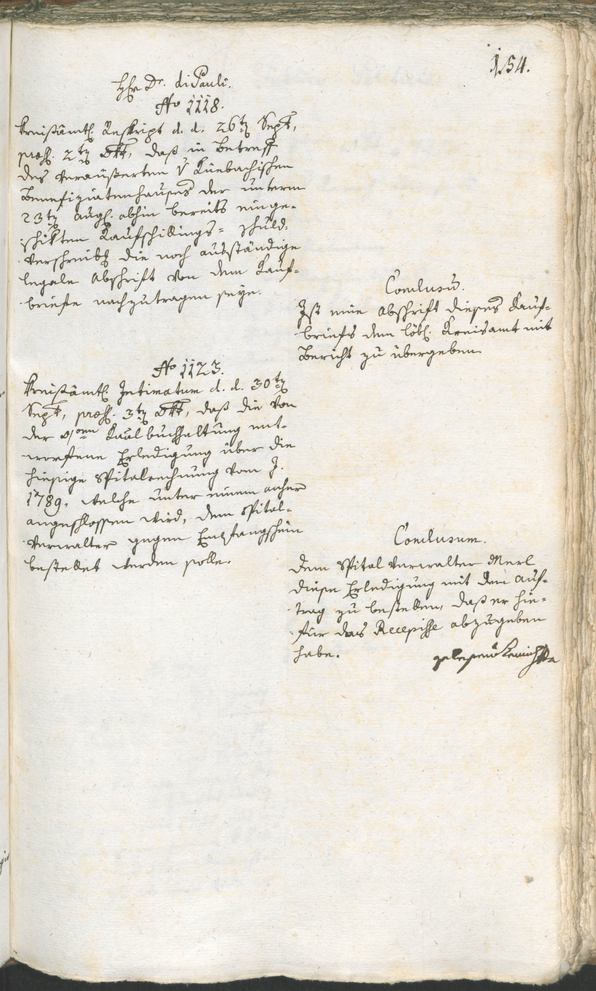 154.
Hr Dr. di Pauli.
No 1118.
Kreisämtl. Reskript d. d. 26ten Sept,
præs. 2ten Okt, daß in Betreff
des veraußerten v Kuebachischen
Benefiziatenhauses der unterm
23ten Aug. abhin bereits einge-
schikten Kaufschillings-Schuld-
verschreib die noch ausständige
legale Abschrift von dem Kauf-
briefe nachzutragen seye.
Conclusū.
Ist eine Abschrift dieses Kauf-
briefs dem löbl. Kreisamt mit
Bericht zu übergeben.
No 1123.
Kreisämtl Intimatum d. d. 30ten
Sept, præs. 3ten Okt, daß die von
der Kaalbuchhaltung ent-
worfene Erledigung über die
hiesige Spitalrechnung vom J.
1789. welche unter einem anher
angeschlossen wird, dem Spital-
verwalter gegen Empfangschein
bestellet werden solle.
Conclusum.
Dem Spitalverwalter Merl
diese Erledigung mit dem Auf-
trag zu bestellen, daß er hie-
für das Recepisse abzugeben
habe.